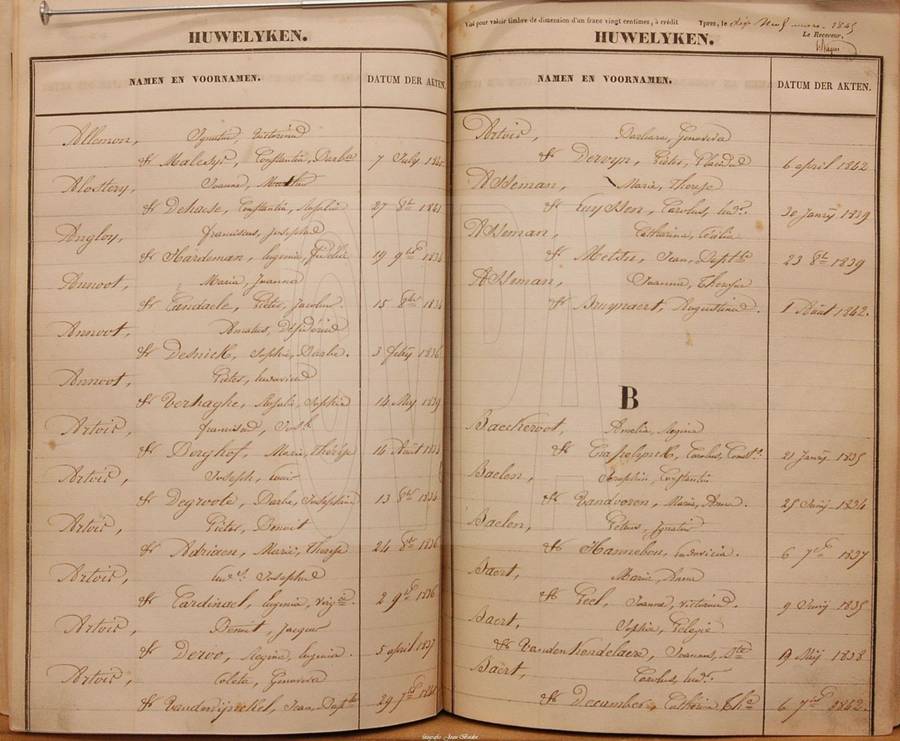 HUWELYKEN.
NAMEN EN VOORNAMEN. DATUM DER AKTEN.
Allemon, Ignatius, Victorina
& Malesys, Constantia, Barba 7 July
Alostery, Joanna,
& Dehaese, Constantin, Rosalie 27 8bre
Angloy, Franciscus, Josephus
& Hardeman, Eugenia, Fidelia 19 9bre
Annoot, Maria, Joanna
& Candaele, Pieter, Jacobus 15 8bre
Annoot, Amatus, Désidérius
& Desnick, Sophia, Barba. 3 feby 1836
Annoot, Pieter, Ludovicus
& Verhaghe, Rosalie, Sophia 14 Mey 1839
Artois, Francisca,
& Derghof, Maria, Thérèse 16 Août
Artois, Joseph, Louis
& Degroote, Barba, Josephina 13 8bre
Artois, Pieter, Benoit
& Adriaen, Marie, Therese 24 8bre 1836
Artois, Josephus
& Cardinael, Eugenia, Virge. 2 9bre 1836
Artois, Benoit, Jacques
& Deroo, Regina, Eugenia. 5 april 1837
Artois, Coleta, Genoveva
& Vandmynckel, Jean, Bapte 29 7bre
Vu pour valoir timbre de dimension d'un franc vingt centimes, à crédit Ypres, le dix neuf mars 1845
Le Receveur.
HUWELYKEN.
NAMEN EN VOORNAMEN. DATUM DER AKTEN.
Artois, Barbara, Genoveva
& Dervyn, Pieter, Placidus 6 april 1842
Asseman, Marie, Therese
& Cuyssen, Carolus, Ludvs. 30 Janry 1839
Asseman, Catharina, Cecilia
& Metsu, Jean, Bapte 23 8bre 1839
Asseman, Joanna, Theresia
& Bruynaert, Augustinus. 1 Août 1842.
B
Baeckeroot, Amelia, Regina
& Carolus, Const. 21 Janry 1835
Baelen, Seraphin, Constantin
& Vandvoren, Maria, Anna. 25 Juny 1834
Baelen, Petrus, Ignatius
& Hannebon, Ludovicia. 6 7bre 1837
Baert, Maria, Anna
& Geel, Joannes, Victorinus. 9 Juny 1835
Baert, Sophia, Pelagie
& Vanden Kendelaere, Joannes, Bte 19 Mey 1838
Baert, Carolus, Ludvs.
& Decumber, Catherina 6 7bre 1842.